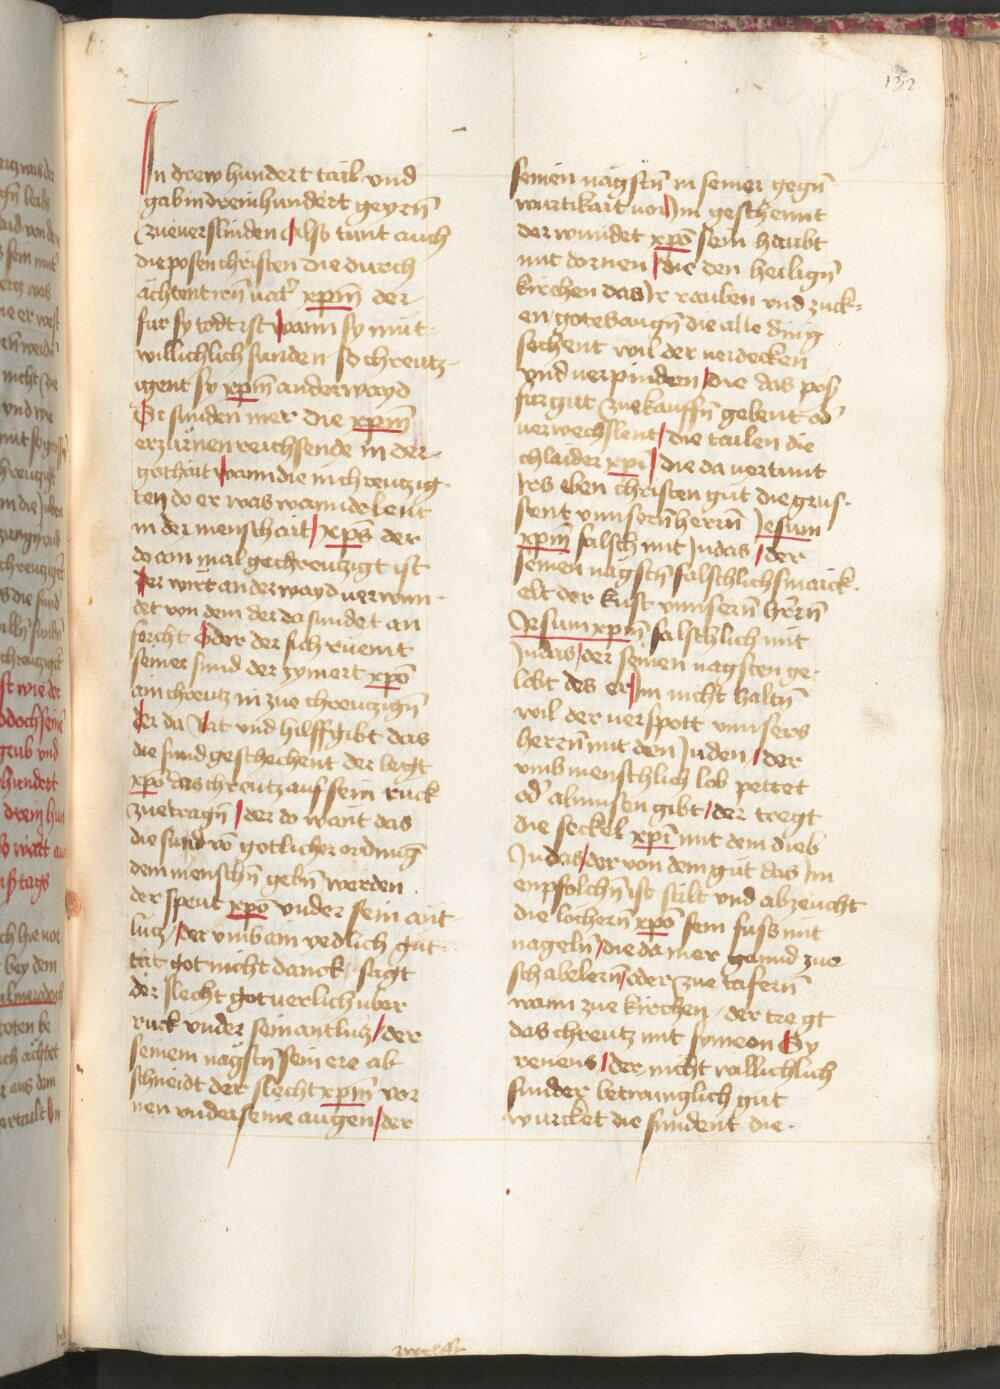 132
In drew hundert tail vnd
gab in drein hundert geyrn̄
zuuerslinden Also tunt auch
die posen christen die durch
ächtent irn̄ vatr̄ xpm̄ der
fur sy todt ist wann sy mut-
willichlich sunden so chreutz-
igent sy xpm̄ anderwayd
Et sunden mer die xpm̄
erzurnen reichsende in der
gothait wann die in chreutzig-
ten do er was wanndelent
in der menschait xps̄ der
do ain mal gechreutzigt ist
der wirt anderwayd uerwun-
det von dem der da sundet an
forcht Oder der sich rüemt
seiner sund der zymert xpō
ain chreutz in zue chreutzign̄
der da rat vnd hilff gibt das
die sund geschechent der legt
xpō das chreutz auf sein ruck
zue tragn̄ der do wänt das
die sund vō gotlicher ordnūg
dem menschn̄ gebn̄ werden
der speut xpō vnder sein ant-
lutz der vmb ain redlich gut-
tat got nicht danck sagt
der slecht got uerlich uber
ruck vnder sein antlutz der
seinem nagstn̄ sein ere ab
schneidt der slecht xpm̄ vor
nen vnder seine augen der
seinen nägstn̄ in seiner gegn̄
wurtikait vor Im geschennt
der wundet xpō sein haubt
mit dornen die den heilign̄
kirchen das Ir rauben vnd zuck-
en gotes augn̄ die alle ding
sechent wil der verdecken
vnd verpinden die das pos
fur gut zuekauffn̄ gebent od̄
verwechslent die tailen die
chlaider xpī die da vertunt
Irs eben christen gut die grus-
sent vnnsern̄ herrn̄ Jesum
xpm̄ falsch mit Judas der
seinen nägstn̄ falschlich smaick-
elt der kust vnnsern̄ hrrn̄
Jesum xpm̄ falschlich mit
Judas der seinen nagsten ge-
lobt des er Im nicht haltn̄
wil der verspott vnnsers
herrn̄ mit den Juden der
vmb menschlich lob pettet
od̄ almusen gibt der tregt
die seckel xpī mit dem dieb
Judas der von dem gut das Im
enpfolchn̄ ist stilt vnd abzeucht
die löchern̄ xpō sein fuss mit
nageln̄ die da mer gennd zue
schabelern̄ oder zue tafern̄
wann zue kirchen der tregt
das chreutz mit symeon Cy
reneus der nicht willichlich
sunder betwunglich gut
wurcket die sundent die